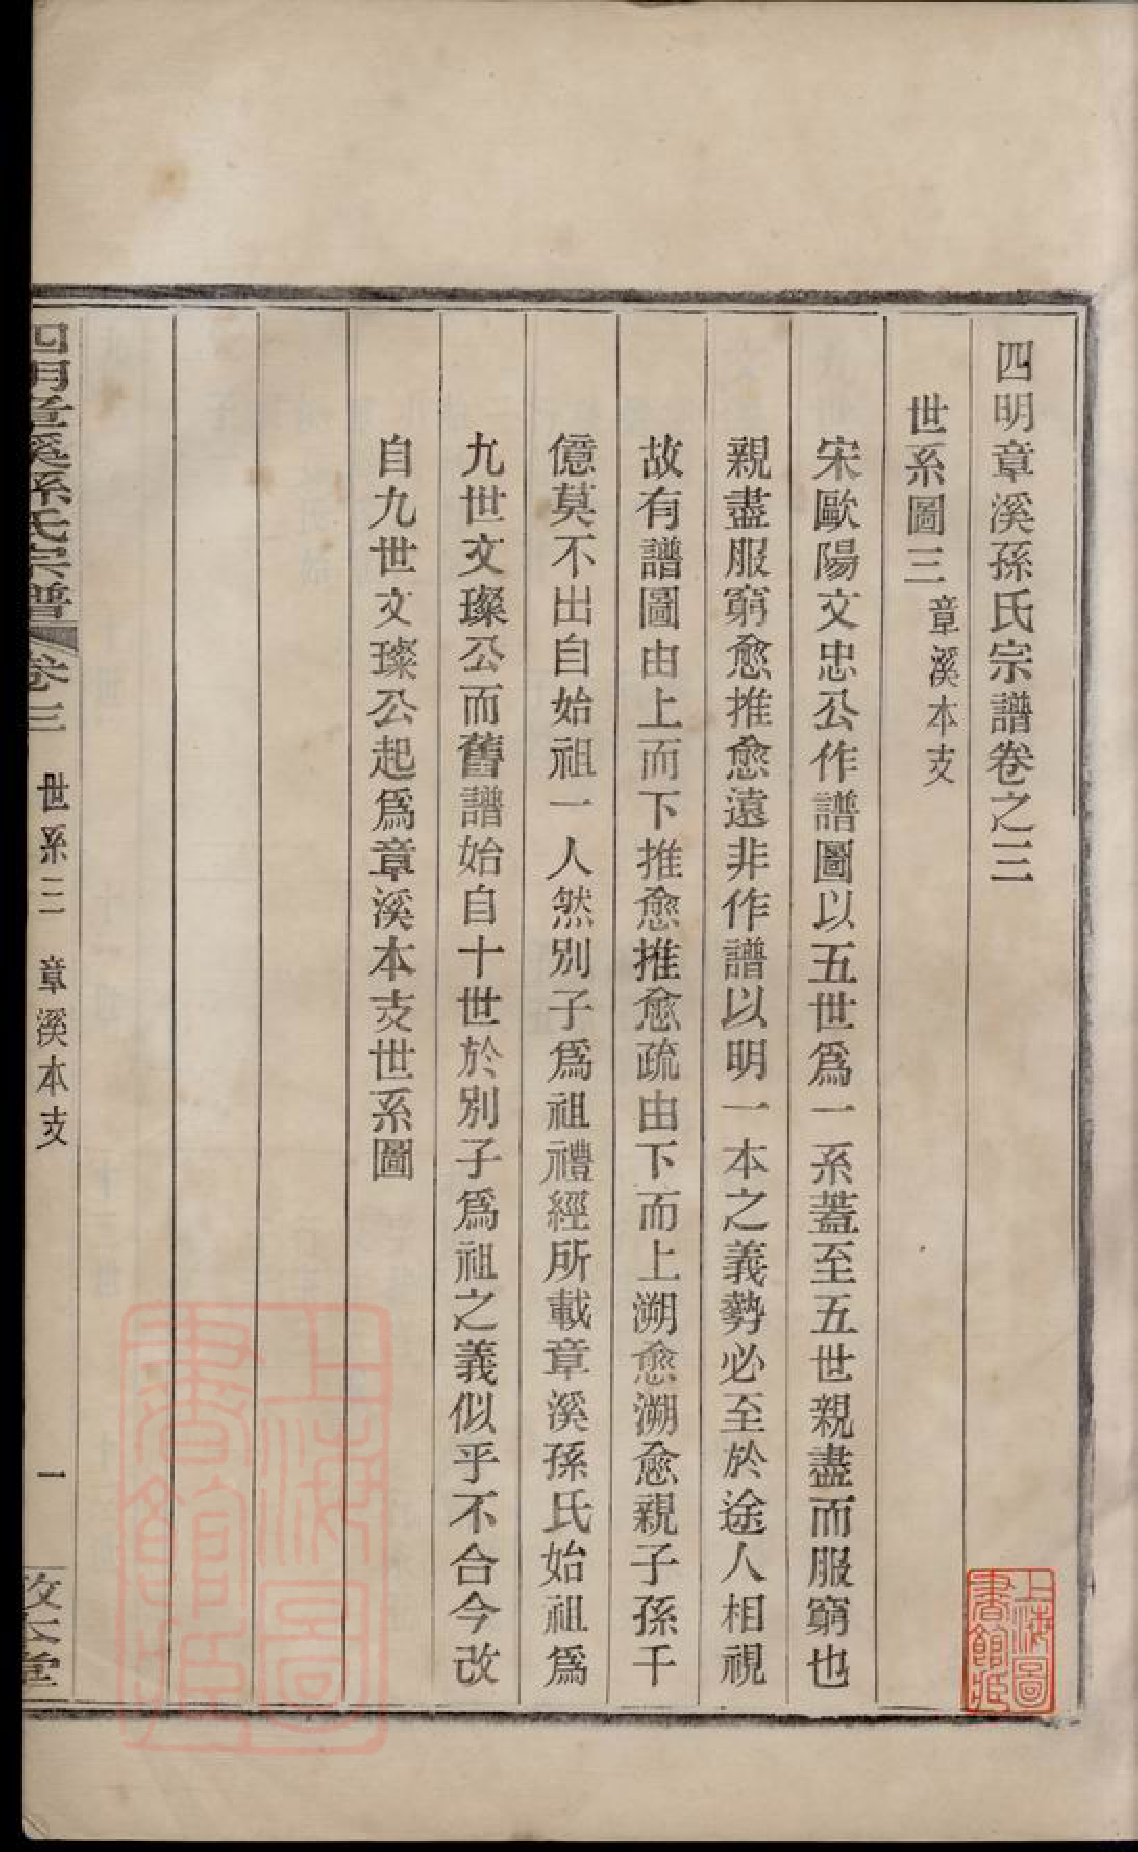 四明章溪孫氏宗譜卷之三
世系圖三 章溪本支
宋歐陽文忠公作譜圖以五世爲一系葢至五世親盡而服窮也
親盡服窮愈推愈遠非作譜以明一本之義勢必至於途人相視
故有譜圖由上而下推愈推愈疏由下而上溯愈溯愈親子孫千
億莫不出自始祖一人然別子爲祖禮經所載章溪孫氏始祖爲
九世文璨公而舊譜始自十世於別子爲祖之義似乎不合今改
自九世文璨公起爲章溪本支世系圖
四明章溪孫氏宗譜 卷三 世系三 章溪本支 一
上海圖書館藏
上海圖書館藏